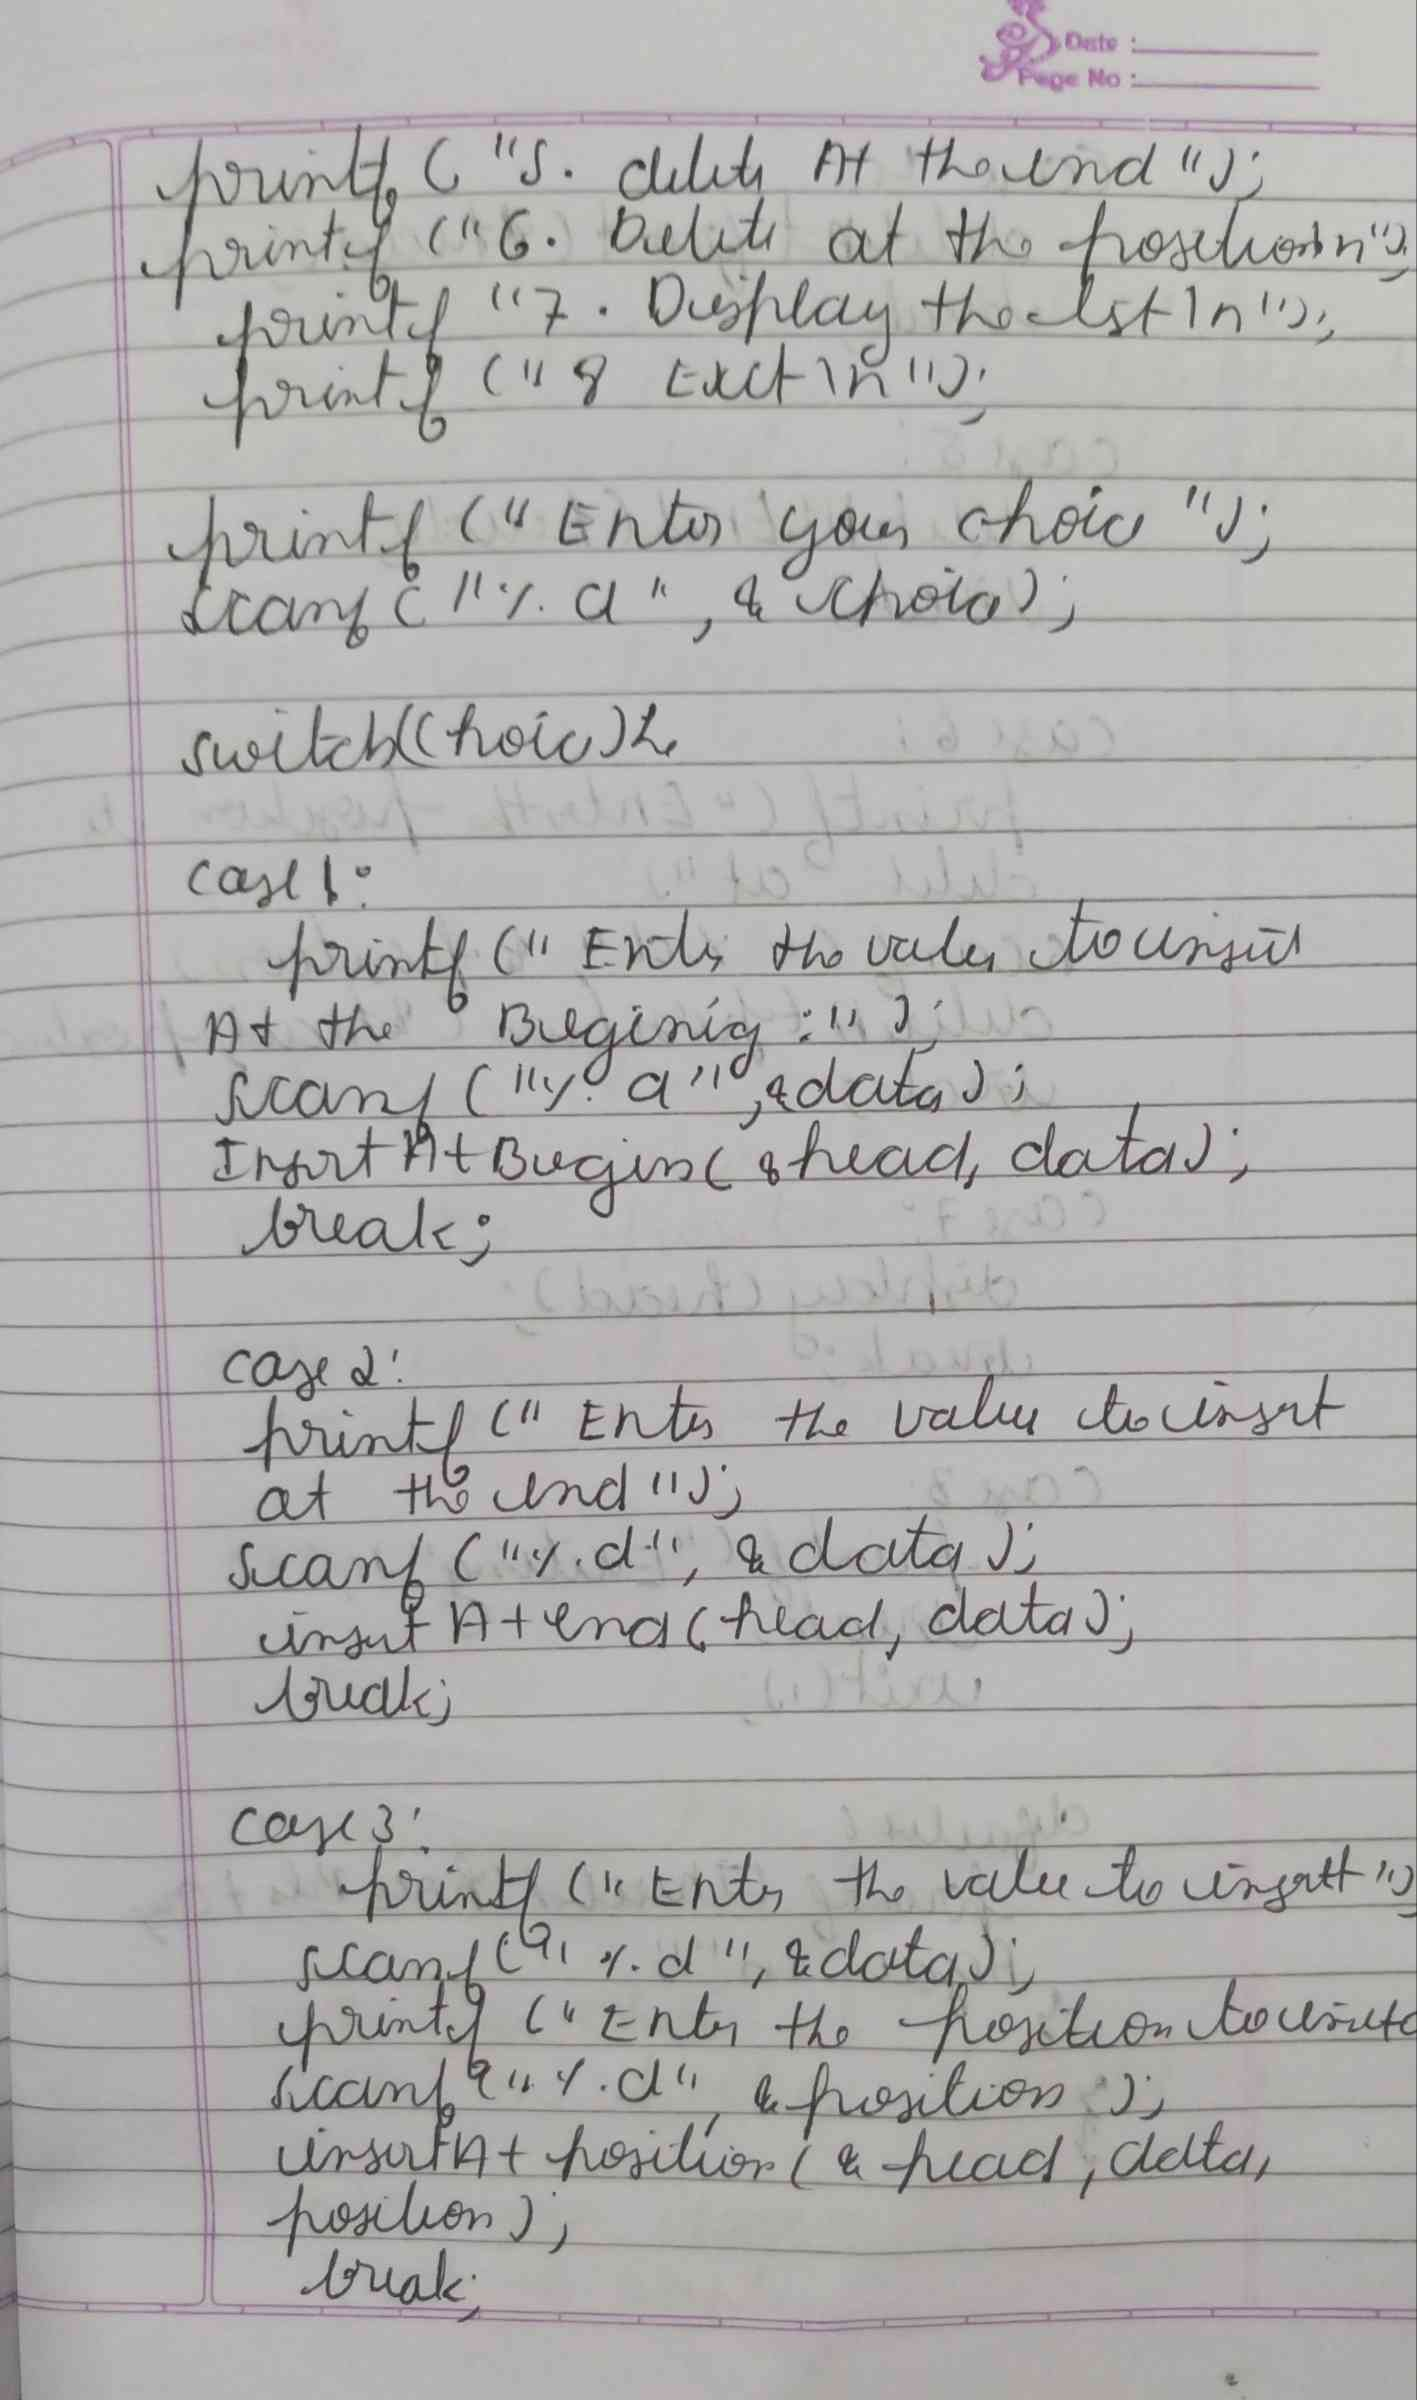 Date :
Page No :
printf ( "5. delete At the end ");
printf ("6. Delete at the position\n");
printf "7. Display the lst \n");
printf ("8 Exit \n");
printf (" Enter your choice ");
scanf ( "%d", & choice);
switch(choice){
case 1:
printf (" Enter the value to insert
At the Beginig :" );
scanf ("%d", &data);
Insert At Begin( &head, data);
break;
case 2:
printf (" Enter the value to insert
at the end ");
scanf ("%d", & data );
insert At end( head, data);
break;
case 3:
printf (" Enter the value to insert ")
scanf (" %d ", &data);
printf (" Enter the position to
scanf "%d", & position );
insert At position ( & head, data,
position );
break;